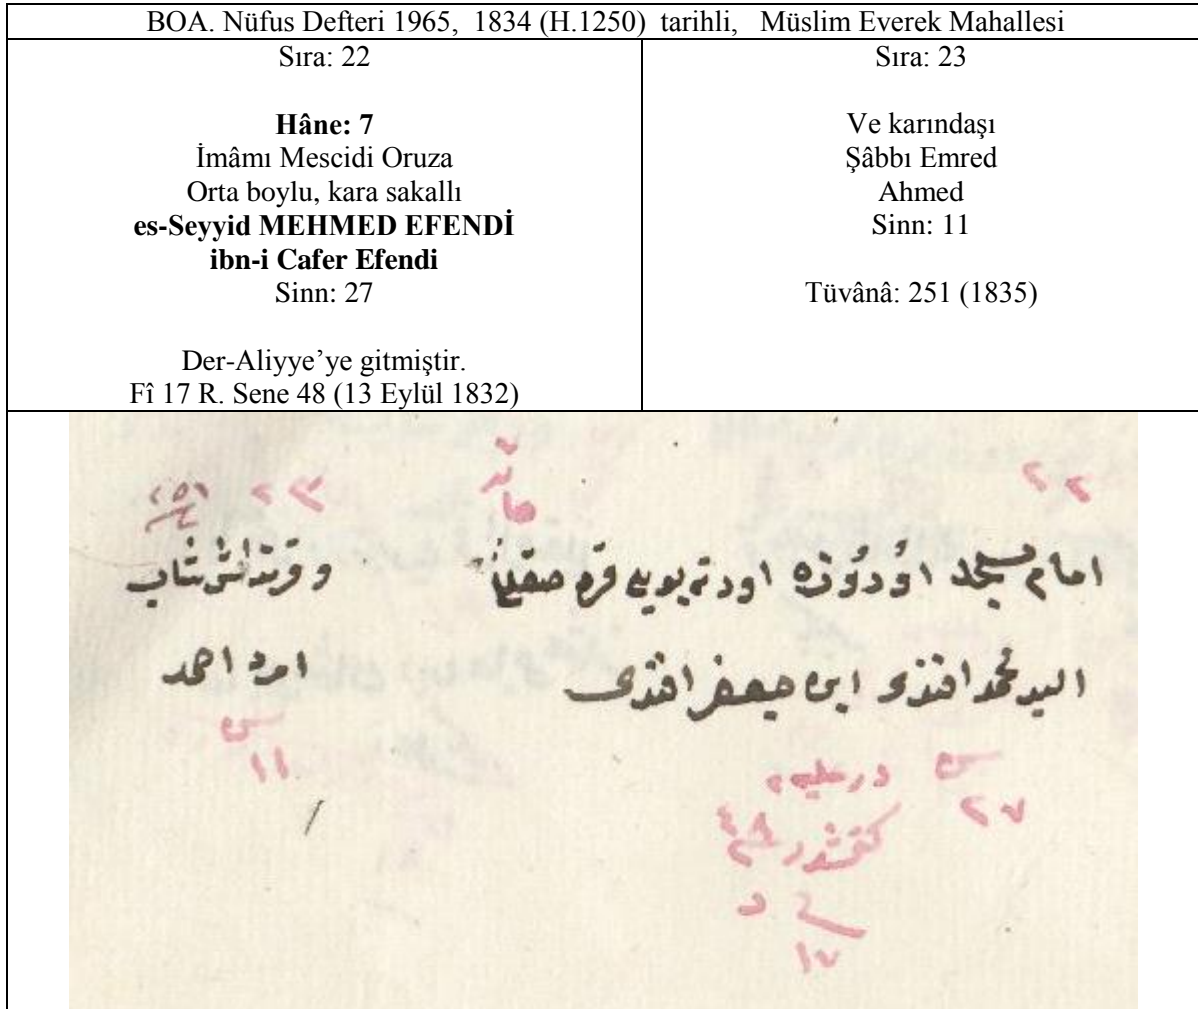 BOA. Nüfus Defteri 1965, 1834 (H.1250) tarihli, Müslim Everek Mahallesi
Sıra: 22
Hâne: 7
İmâmı Mescidi Oruza
Orta boylu, kara sakallı
es-Seyyid MEHMED EFENDİ
ibn-i Cafer Efendi
Sinn: 27
Der-Aliyye’ye gitmiştir.
Fî 17 R. Sene 48 (13 Eylül 1832)
Sıra: 23
Ve karındaşı
Şâbbı Emred
Ahmed
Sinn: 11
Tüvânâ: 251 (1835)
٢٢
خانه ٧
امام مسجد اوُروُزه اورته بویلی قره صقللی
السید محمد افندی ابن جعفر افندی
سن
٢٧
در علیه
کتمشدر
٤٨
١٧
٢٣
٢٥١
و قرنداشی شاب
امرد احمد
سن
١١